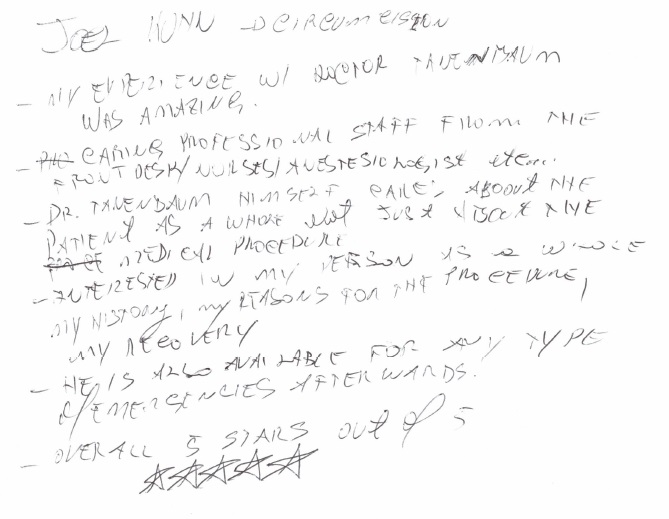 JOEL KUNN → CIRCUMCISION
- MY EXPERIENCE W/ DOCTOR TANENBAUM
WAS AMAZING.
- CARING PROFESSIONAL STAFF FROM THE
FRONT DESK/NURSES/ANESTESIOLOGIST etc...
- DR. TANENBAUM HIMSELF CARES ABOUT THE
PATIENT AS A WHOLE not JUST ABOUT THE
MEDICAL PROCEDURE
- INTERESTED IN MY PERSON AS a WHOLE
MY HISTORY, MY REASONS FOR THE PROCEDURE,
MY RECOVERY
- HE IS ALSO AVAILABLE FOR ANY TYPE
of EMERGENCIES AFTERWARDS.
- OVERALL 5 STARS OUT of 5